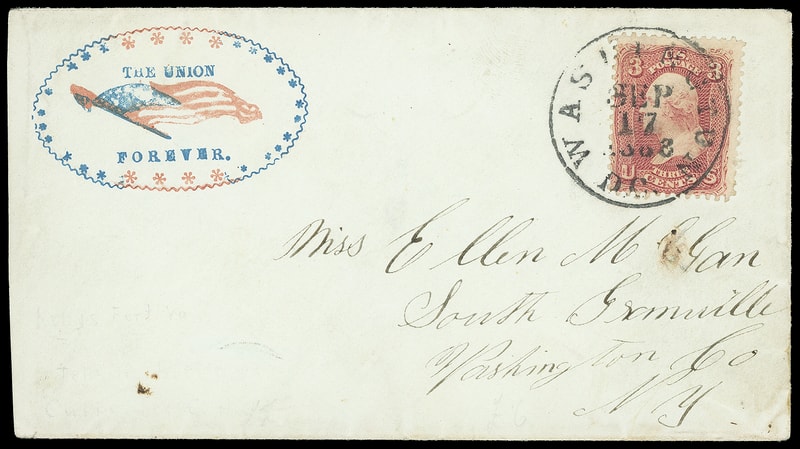 THE UNION
FOREVER.
WASHINGTON D.C.
SEP
17
1863
U.S.
POSTAGE
3 3
THREE
CENTS
U S
Miss Ellen M
South Granville
Washington Co
N.Y.